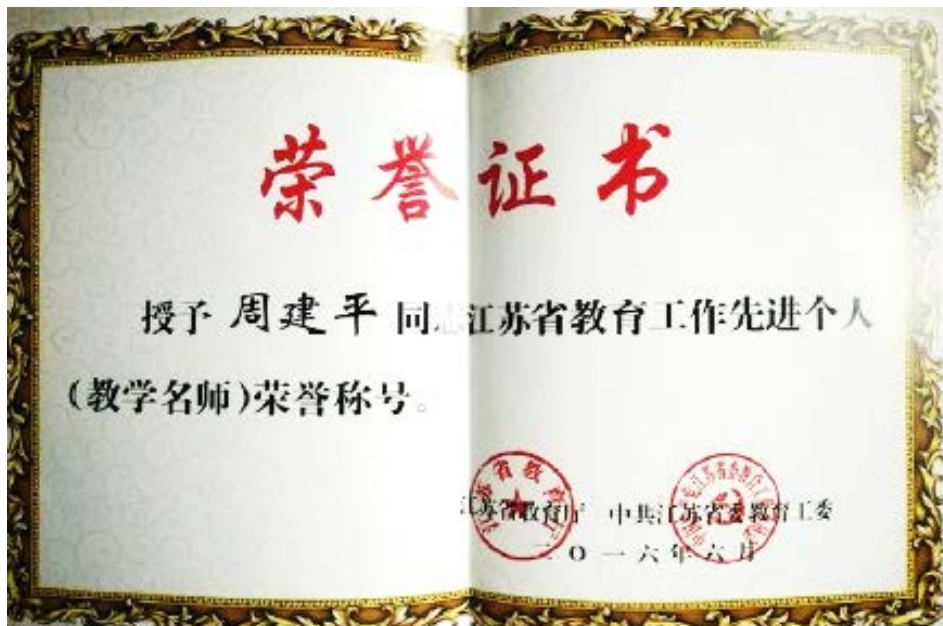 荣誉证书
授予 周建平 同 江苏省教育工作先进个人
(教学名师)荣誉称号。
江苏省教育厅 中共江苏省委教育工委
二〇一六年六月